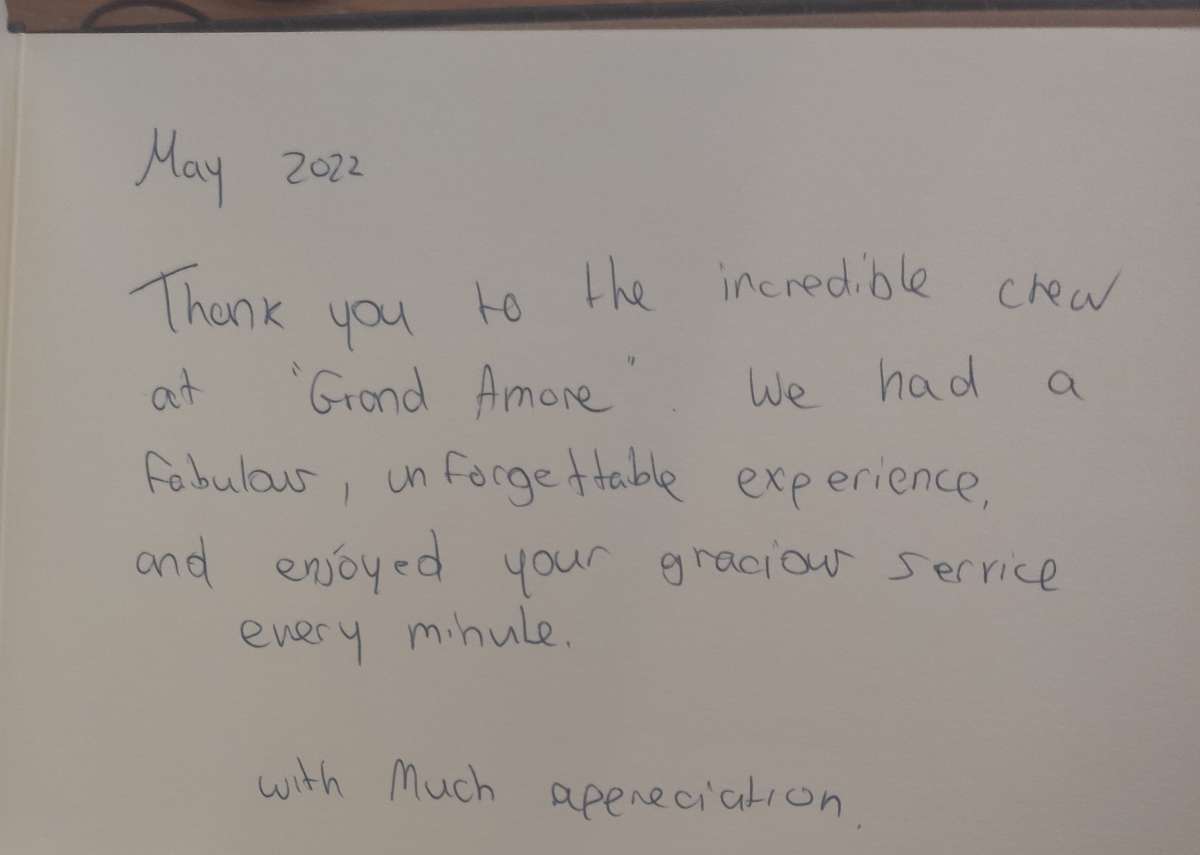 May 2022
Thank you to the incredible crew
at "Grand Amore". We had a
fabulous, unforgettable experience,
and enjoyed your gracious service
every minute.
with Much appreciation.